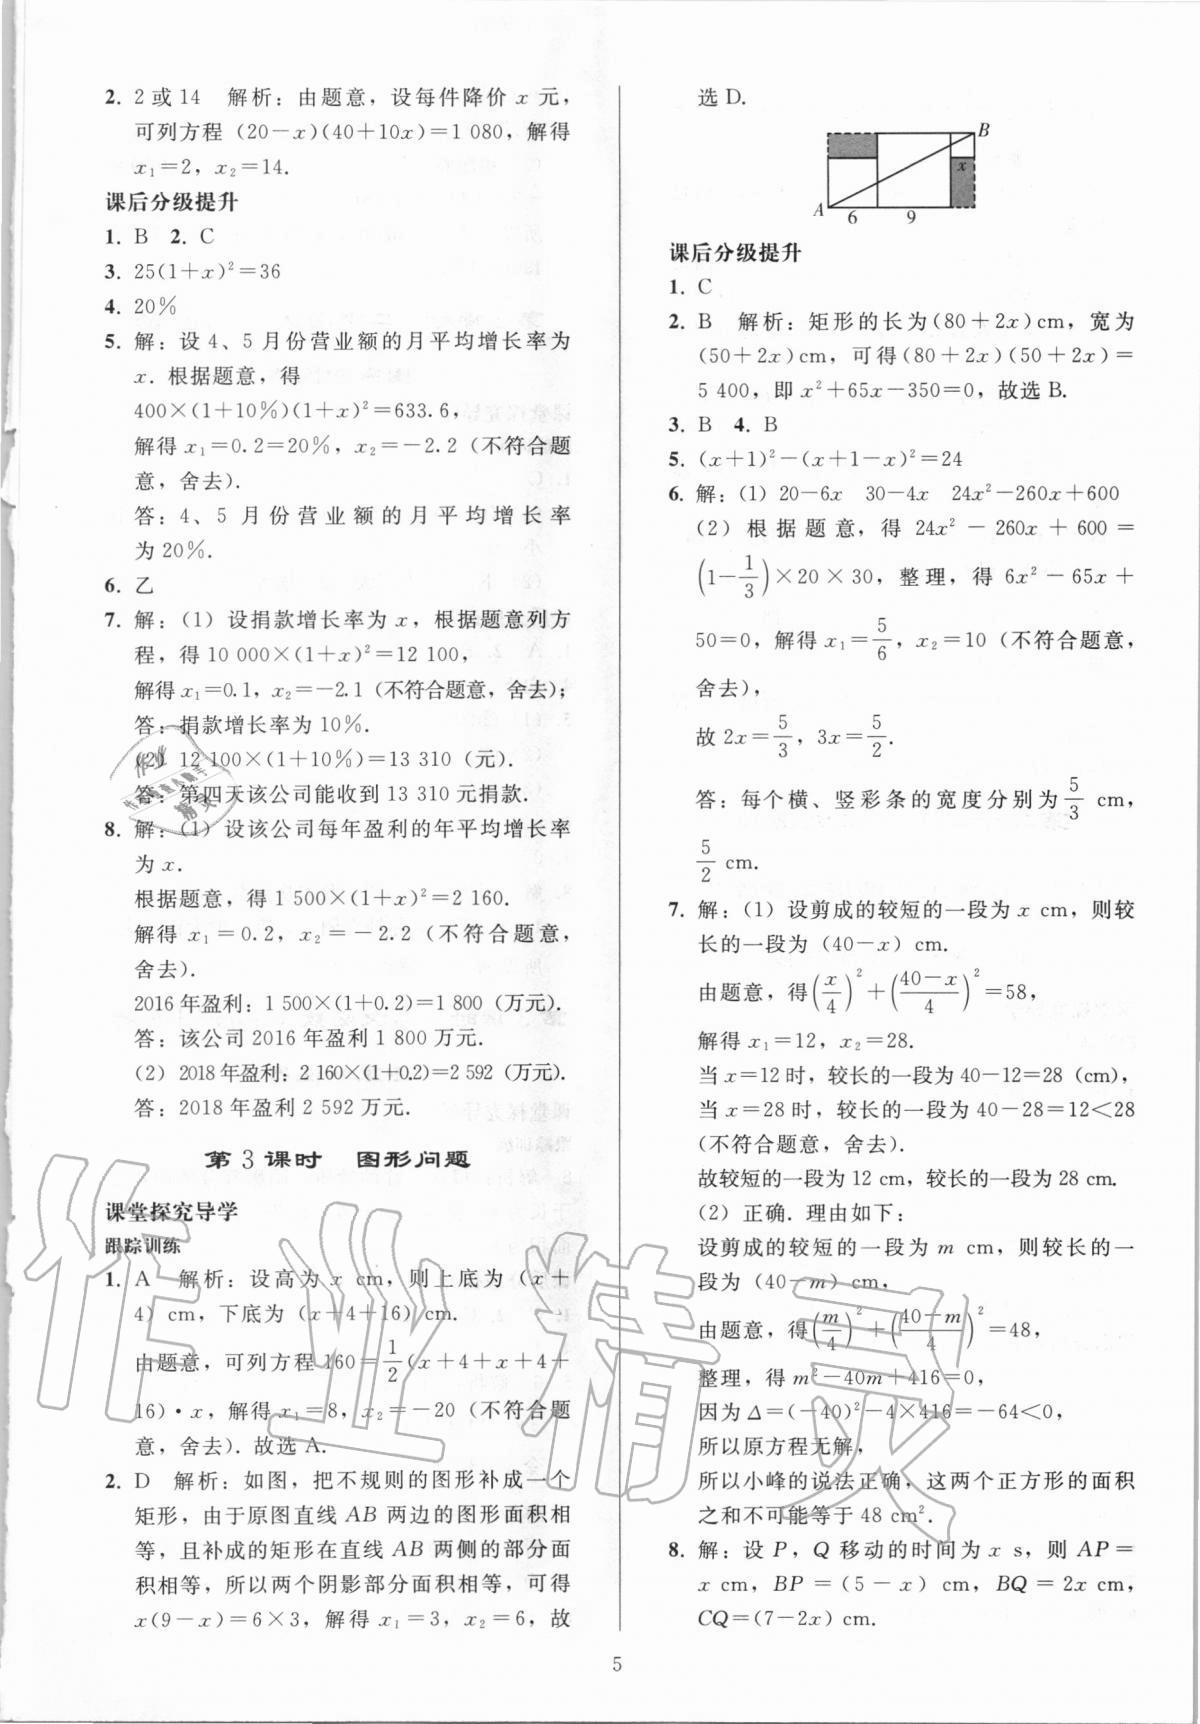 2. 2或14 解析：由题意，设每件降价 x 元，
可列方程 (20－x)(40＋10x)＝1 080，解得
x₁＝2，x₂＝14.
课后分级提升
1. B 2. C
3. 25(1＋x)²＝36
4. 20％
5. 解：设 4、5 月份营业额的月平均增长率为
x. 根据题意，得
400×(1＋10％)(1＋x)²＝633.6，
解得 x₁＝0.2＝20％，x₂＝－2.2（不符合题
意，舍去）.
答：4、5 月份营业额的月平均增长率
为 20％.
6. 乙
7. 解：(1) 设捐款增长率为 x，根据题意列方
程，得 10 000×(1＋x)²＝12 100，
解得 x₁＝0.1，x₂＝－2.1（不符合题意，舍去）；
答：捐款增长率为 10％.
(2) 12 100×(1＋10％)＝13 310（元）.
答：第四天该公司能收到 13 310 元捐款.
8. 解：(1) 设该公司每年盈利的年平均增长率
为 x.
根据题意，得 1 500×(1＋x)²＝2 160.
解得 x₁＝0.2，x₂＝－2.2（不符合题意，
舍去）.
2016 年盈利：1 500×(1＋0.2)＝1 800（万元）.
答：该公司 2016 年盈利 1 800 万元.
(2) 2018 年盈利：2 160×(1＋0.2)＝2 592（万元）.
答：2018 年盈利 2 592 万元.
第 3 课时 图形问题
课堂探究导学
跟踪训练
1. A 解析：设高为 x cm，则上底为 (x＋
4) cm，下底为 (x＋4＋16) cm.
由题意，可列方程 160＝1/2(x＋4＋x＋4＋
16)·x，解得 x₁＝8，x₂＝－20（不符合题
意，舍去）. 故选 A.
2. D 解析：如图，把不规则的图形补成一个
矩形，由于原图直线 AB 两边的图形面积相
等，且补成的矩形在直线 AB 两侧的部分面
积相等，所以两个阴影部分面积相等，可得
x(9－x)＝6×3，解得 x₁＝3，x₂＝6，故
选 D.
B
x
A
6
9
课后分级提升
1. C
2. B 解析：矩形的长为(80＋2x)cm，宽为
(50＋2x)cm，可得(80＋2x)(50＋2x)＝
5 400，即 x²＋65x－350＝0，故选 B.
3. B 4. B
5. (x＋1)²－(x＋1－x)²＝24
6. 解：(1) 20－6x 30－4x 24x²－260x＋600
(2) 根据题意，得 24x²－260x＋600＝
(1－1/3)×20×30，整理，得 6x²－65x＋
50＝0，解得 x₁＝5/6，x₂＝10（不符合题意，
舍去），
故 2x＝5/3，3x＝5/2.
答：每个横、竖彩条的宽度分别为 5/3 cm，
5/2 cm.
7. 解：(1) 设剪成的较短的一段为 x cm，则较
长的一段为 (40－x) cm.
由题意，得(x/4)²＋((40－x)/4)²＝58，
解得 x₁＝12，x₂＝28.
当 x＝12 时，较长的一段为 40－12＝28 (cm)，
当 x＝28 时，较长的一段为 40－28＝12＜28
（不符合题意，舍去）.
故较短的一段为 12 cm，较长的一段为 28 cm.
(2) 正确. 理由如下：
设剪成的较短的一段为 m cm，则较长的一
段为 (40－m) cm，
由题意，得(m/4)²＋((40－m)/4)²＝48，
整理，得 m²－40m＋416＝0，
因为 Δ＝(－40)²－4×416＝－64＜0，
所以原方程无解，
所以小峰的说法正确，这两个正方形的面积
之和不可能等于 48 cm².
8. 解：设 P，Q 移动的时间为 x s，则 AP＝
x cm，BP＝(5－x) cm，BQ＝2x cm，
CQ＝(7－2x) cm.
5
作业精灵